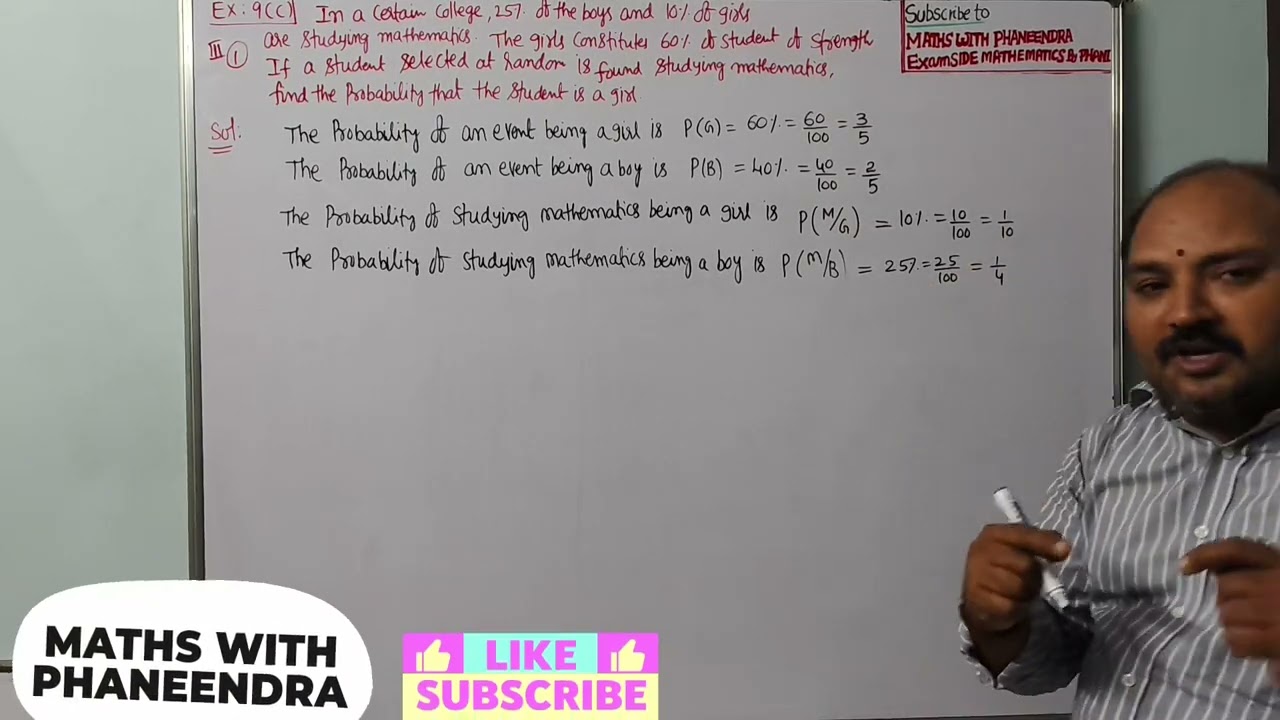 Ex: 9(c) In a certain college, 25% of the boys and 10% of girls
III ① are studying mathematics. The girls constitutes 60% of student of strength
If a student selected at random is found studying mathematics,
find the Probability that the student is a girl.
Subscribe to
MATHS WITH PHANEENDRA
ExamSIDE MATHEMATICS By PHANI
Sol: The Probability of an event being a girl is P(G) = 60% = 60/100 = 3/5
The Probability of an event being a boy is P(B) = 40% = 40/100 = 2/5
The Probability of studying mathematics being a girl is P(M/G) = 10% = 10/100 = 1/10
The Probability of studying mathematics being a boy is P(M/B) = 25% = 25/100 = 1/4
MATHS WITH
PHANEENDRA
LIKE
SUBSCRIBE